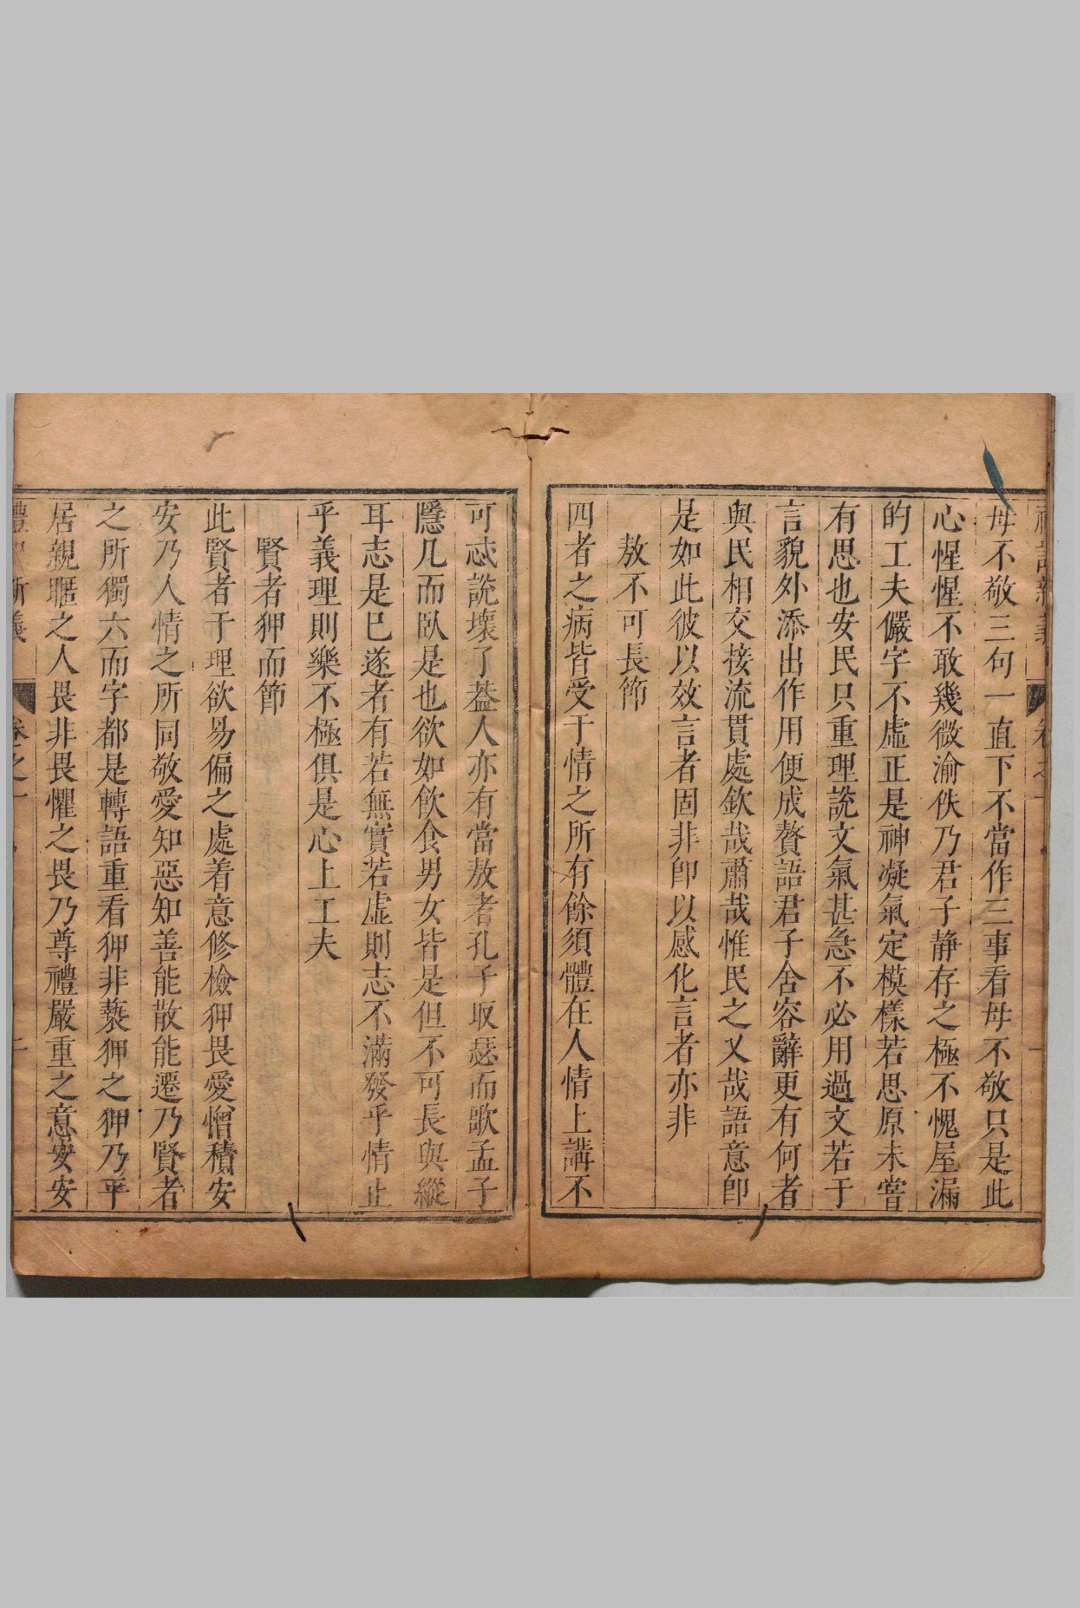 毋不敬三句一直下不當作三事看毋不敬只是此
心惺惺不敢幾微渝佚乃君子靜存之極不愧屋漏
的工夫儼字不虛正是神凝氣定模樣若思原未嘗
有思也安民只重理說文氣甚急不必用過文若于
言貌外添出作用便成贅語君子舍容辭更有何者
與民相交接流貫處欽哉肅哉惟民之又哉語意卽
是如此彼以效言者固非卽以感化言者亦非
敖不可長節
四者之病皆受于情之所有餘須體在人情上講不
可忒說壞了葢人亦有當敖者孔子取瑟而歌孟子
隱几而臥是也欲如飲食男女皆是但不可長與縱
耳志是巳遂者有若無實若虛則志不滿發乎情止
乎義理則樂不極俱是心上工夫
賢者狎而節
此賢者于理欲易偏之處着意修檢狎畏愛憎積安
安乃人情之所同敬愛知惡知善能散能遷乃賢者
之所獨六而字都是轉語重看狎非褻狎之狎乃平
居親暱之人畏非畏懼之畏乃尊禮嚴重之意安安
禮 新義 卷之一 二